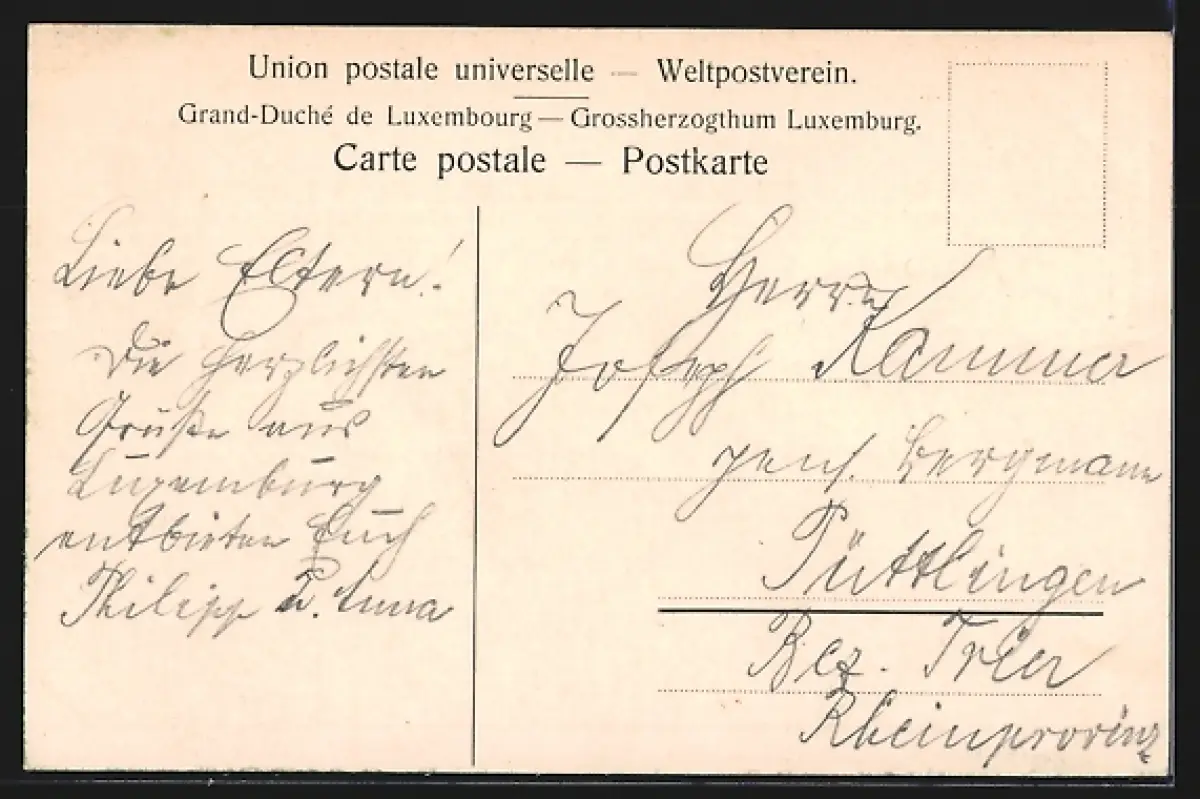 Union postale universelle — Weltpostverein.
Grand-Duché de Luxembourg — Grossherzogthum Luxemburg.
Carte postale — Postkarte
Liebe Eltern!
Die herzlichsten
Grüße aus
Luxemburg
entbieten Euch
Philipp u. Anna
Herrn
Joseph
pens. Bergmann
Püttlingen
Bez. Trier
Rheinprovinz